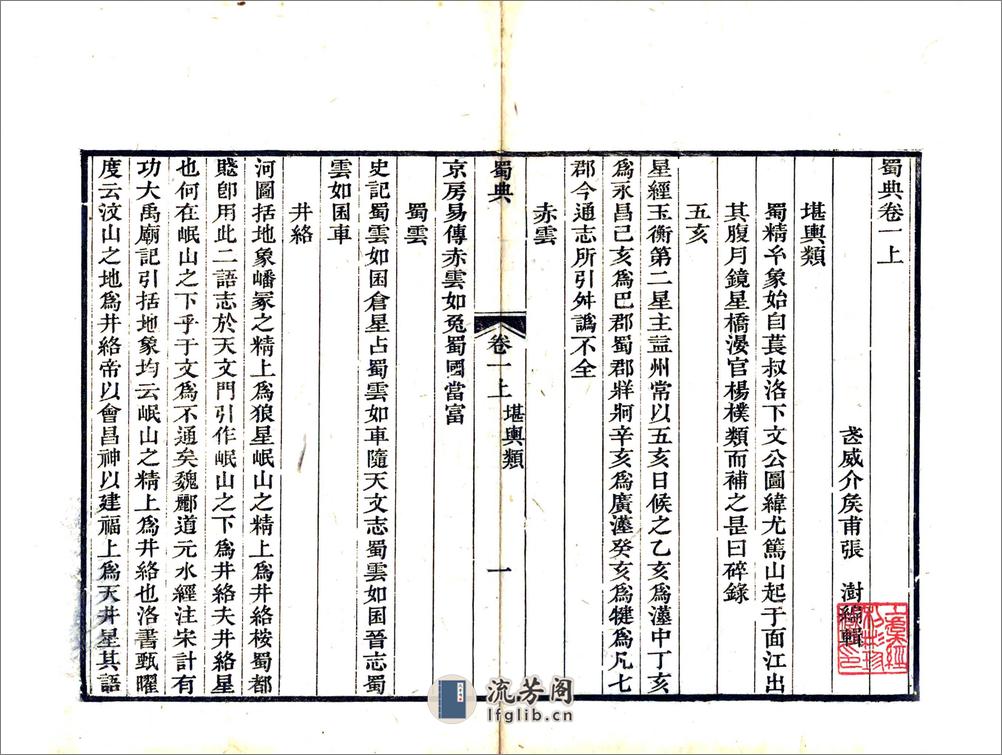 蜀典卷一上
武威介矦甫張　澍編輯
堪輿類
蜀精𠔃象始自萇叔洛下文公圖緯尤篤山起于面江出
其腹月鏡星橋漫官楊樸類而補之是曰碎錄
五亥
星經玉衡第二星主益州常以五亥日候之乙亥爲漢中丁亥
爲永昌己亥爲巴郡蜀郡牂牁辛亥爲廣漢癸亥爲犍爲凡七
郡今通志所引舛譌不全
赤雲
蜀典
卷一上
堪輿類
一
京房易傳赤雲如兔蜀國當富
蜀雲
史記蜀雲如囷倉星占蜀雲如車隨天文志蜀雲如囷晉志蜀
雲如囷車
井絡
河圖括地象嶓冢之精上爲狼星岷山之精上爲井絡桉蜀都
賤卽用此二語志於天文門引作岷山之下爲井絡夫井絡星
也何在岷山之下乎于文爲不通矣魏酈道元水經注宋計有
功大禹廟記引括地象均云岷山之精上爲井絡也洛書甄曜
度云汶山之地爲井絡帝以會昌神以建福上爲天井星其語
流芳阁
lfglib.cn